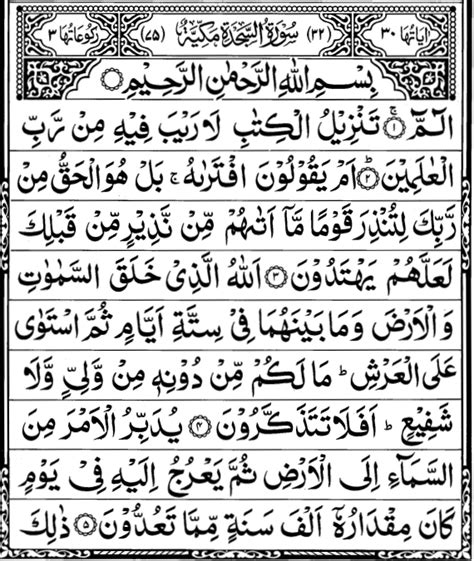 اٰیَاتُهَا ۳۰ (۳۲) سُوْرَةُ السَّجْدَةِ مَكِّیَّةٌ (۷۵) رُكُوْعَاتُهَا ۳
بِسْمِ اللّٰهِ الرَّحْمٰنِ الرَّحِیْمِ
الٓمّٓ ۚ﴿۱﴾ تَنْزِیْلُ الْكِتٰبِ لَا رَیْبَ فِیْهِ مِنْ رَّبِّ
الْعٰلَمِیْنَ ؕ﴿۲﴾ اَمْ یَقُوْلُوْنَ افْتَرٰىهُ ۚ بَلْ هُوَ الْحَقُّ مِنْ
رَّبِّكَ لِتُنْذِرَ قَوْمًا مَّاۤ اَتٰىهُمْ مِّنْ نَّذِیْرٍ مِّنْ قَبْلِكَ
لَعَلَّهُمْ یَهْتَدُوْنَ ﴿۳﴾ اَللّٰهُ الَّذِیْ خَلَقَ السَّمٰوٰتِ
وَ الْاَرْضَ وَ مَا بَیْنَهُمَا فِیْ سِتَّةِ اَیَّامٍ ثُمَّ اسْتَوٰى
عَلَى الْعَرْشِ ؕ مَا لَكُمْ مِّنْ دُوْنِهٖ مِنْ وَّلِیٍّ وَّ لَا
شَفِیْعٍ ؕ اَفَلَا تَتَذَكَّرُوْنَ ﴿۴﴾ یُدَبِّرُ الْاَمْرَ مِنَ
السَّمَآءِ اِلَى الْاَرْضِ ثُمَّ یَعْرُجُ اِلَیْهِ فِیْ یَوْمٍ
كَانَ مِقْدَارُهٗۤ اَلْفَ سَنَةٍ مِّمَّا تَعُدُّوْنَ ﴿۵﴾ ذٰلِكَ